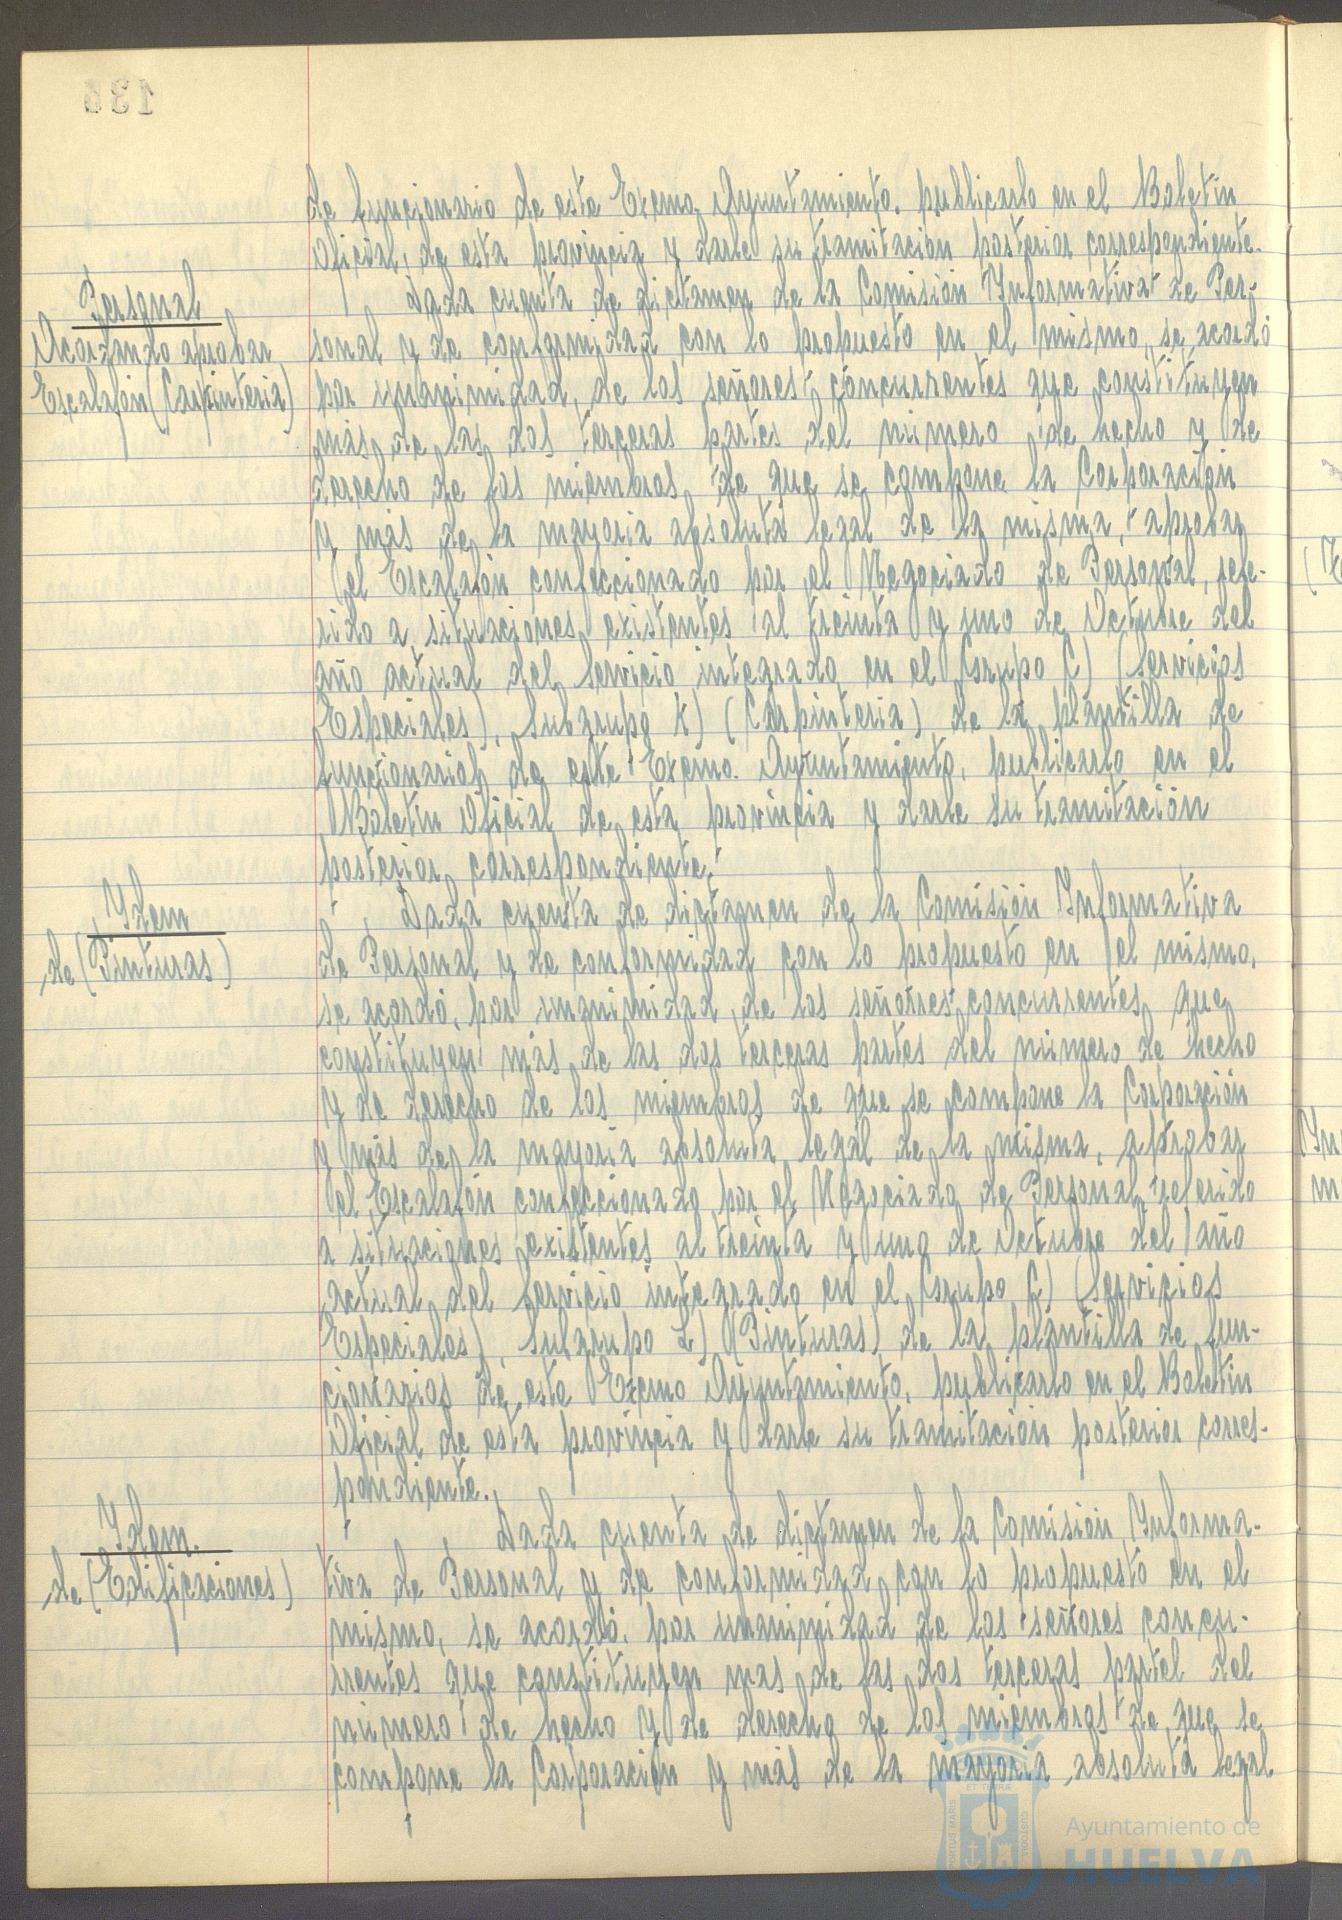 de funcionario de este Excmo. Ayuntamiento, publicarlo en el Boletín
Oficial, de esta provincia y darle su tramitación posterior correspondiente.
Personal
Acordando aprobar
Escalafón (Carpintería)
Dada cuenta de dictamen de la Comisión Informativa de Per-
sonal y de conformidad con lo propuesto en el mismo, se acordó
por unanimidad, de los señores concurrentes que constituyen
más de las dos terceras partes del número de hecho y de
derecho de los miembros de que se compone la Corporación
y más de la mayoría absoluta legal de la misma, aprobar
el Escalafón confeccionado por el Negociado de Personal, refe-
rido a situaciones existentes al treinta y uno de Octubre del
año actual del Servicio integrado en el Grupo C) (Servicios
Especiales), Subgrupo K) (Carpintería) de la plantilla de
funcionarios de este Excmo. Ayuntamiento, publicarlo en el
Boletín Oficial de esta provincia y darle su tramitación
posterior correspondiente.
Ydem
de (Pinturas)
Dada cuenta de dictamen de la Comisión Informativa
de Personal y de conformidad con lo propuesto en el mismo,
se acordó, por unanimidad, de los señores concurrentes que
constituyen más de las dos terceras partes del número de hecho
y de derecho de los miembros de que se compone la Corporación
y más de la mayoría absoluta legal de la misma, aprobar
el Escalafón confeccionado por el Negociado de Personal, referido
a situaciones existentes al treinta y uno de Octubre del año
actual del Servicio integrado en el Grupo C) (Servicios
Especiales), Subgrupo L) (Pinturas) de la plantilla de fun-
cionarios de este Excmo Ayuntamiento, publicarlo en el Boletín
Oficial de esta provincia y darle su tramitación posterior corres-
pondiente.
Ydem.
de (Edificaciones)
Dada cuenta de dictamen de la Comisión Informa-
tiva de Personal y de conformidad con lo propuesto en el
mismo, se acordó, por unanimidad de los señores concu-
rrentes que constituyen mas de las dos terceras partes del
número de hecho y de derecho de los miembros de que se
compone la Corporación y más de la mayoría absoluta legal
Ayuntamiento de
HUELVA